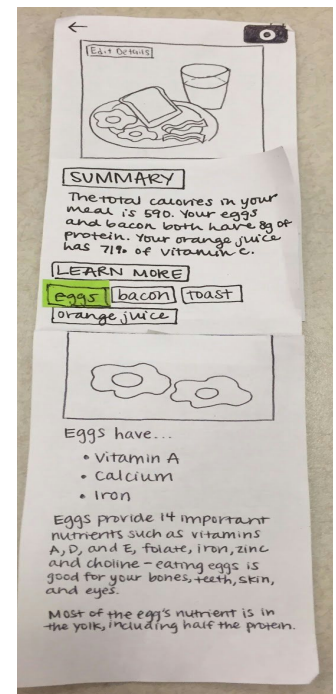 Edit Details
SUMMARY
The total calories in your
meal is 590. Your eggs
and bacon both have 8g of
protein. Your orange juice
has 71% of vitamin c.
LEARN MORE
eggs bacon toast
orange juice
Eggs have...
• Vitamin A
• Calcium
• Iron
Eggs provide 14 important
nutrients such as vitamins
A, D, and E, folate, iron, zinc
and choline - eating eggs is
good for your bones, teeth, skin,
and eyes.
Most of the egg's nutrient is in
the yolk, including half the protein.